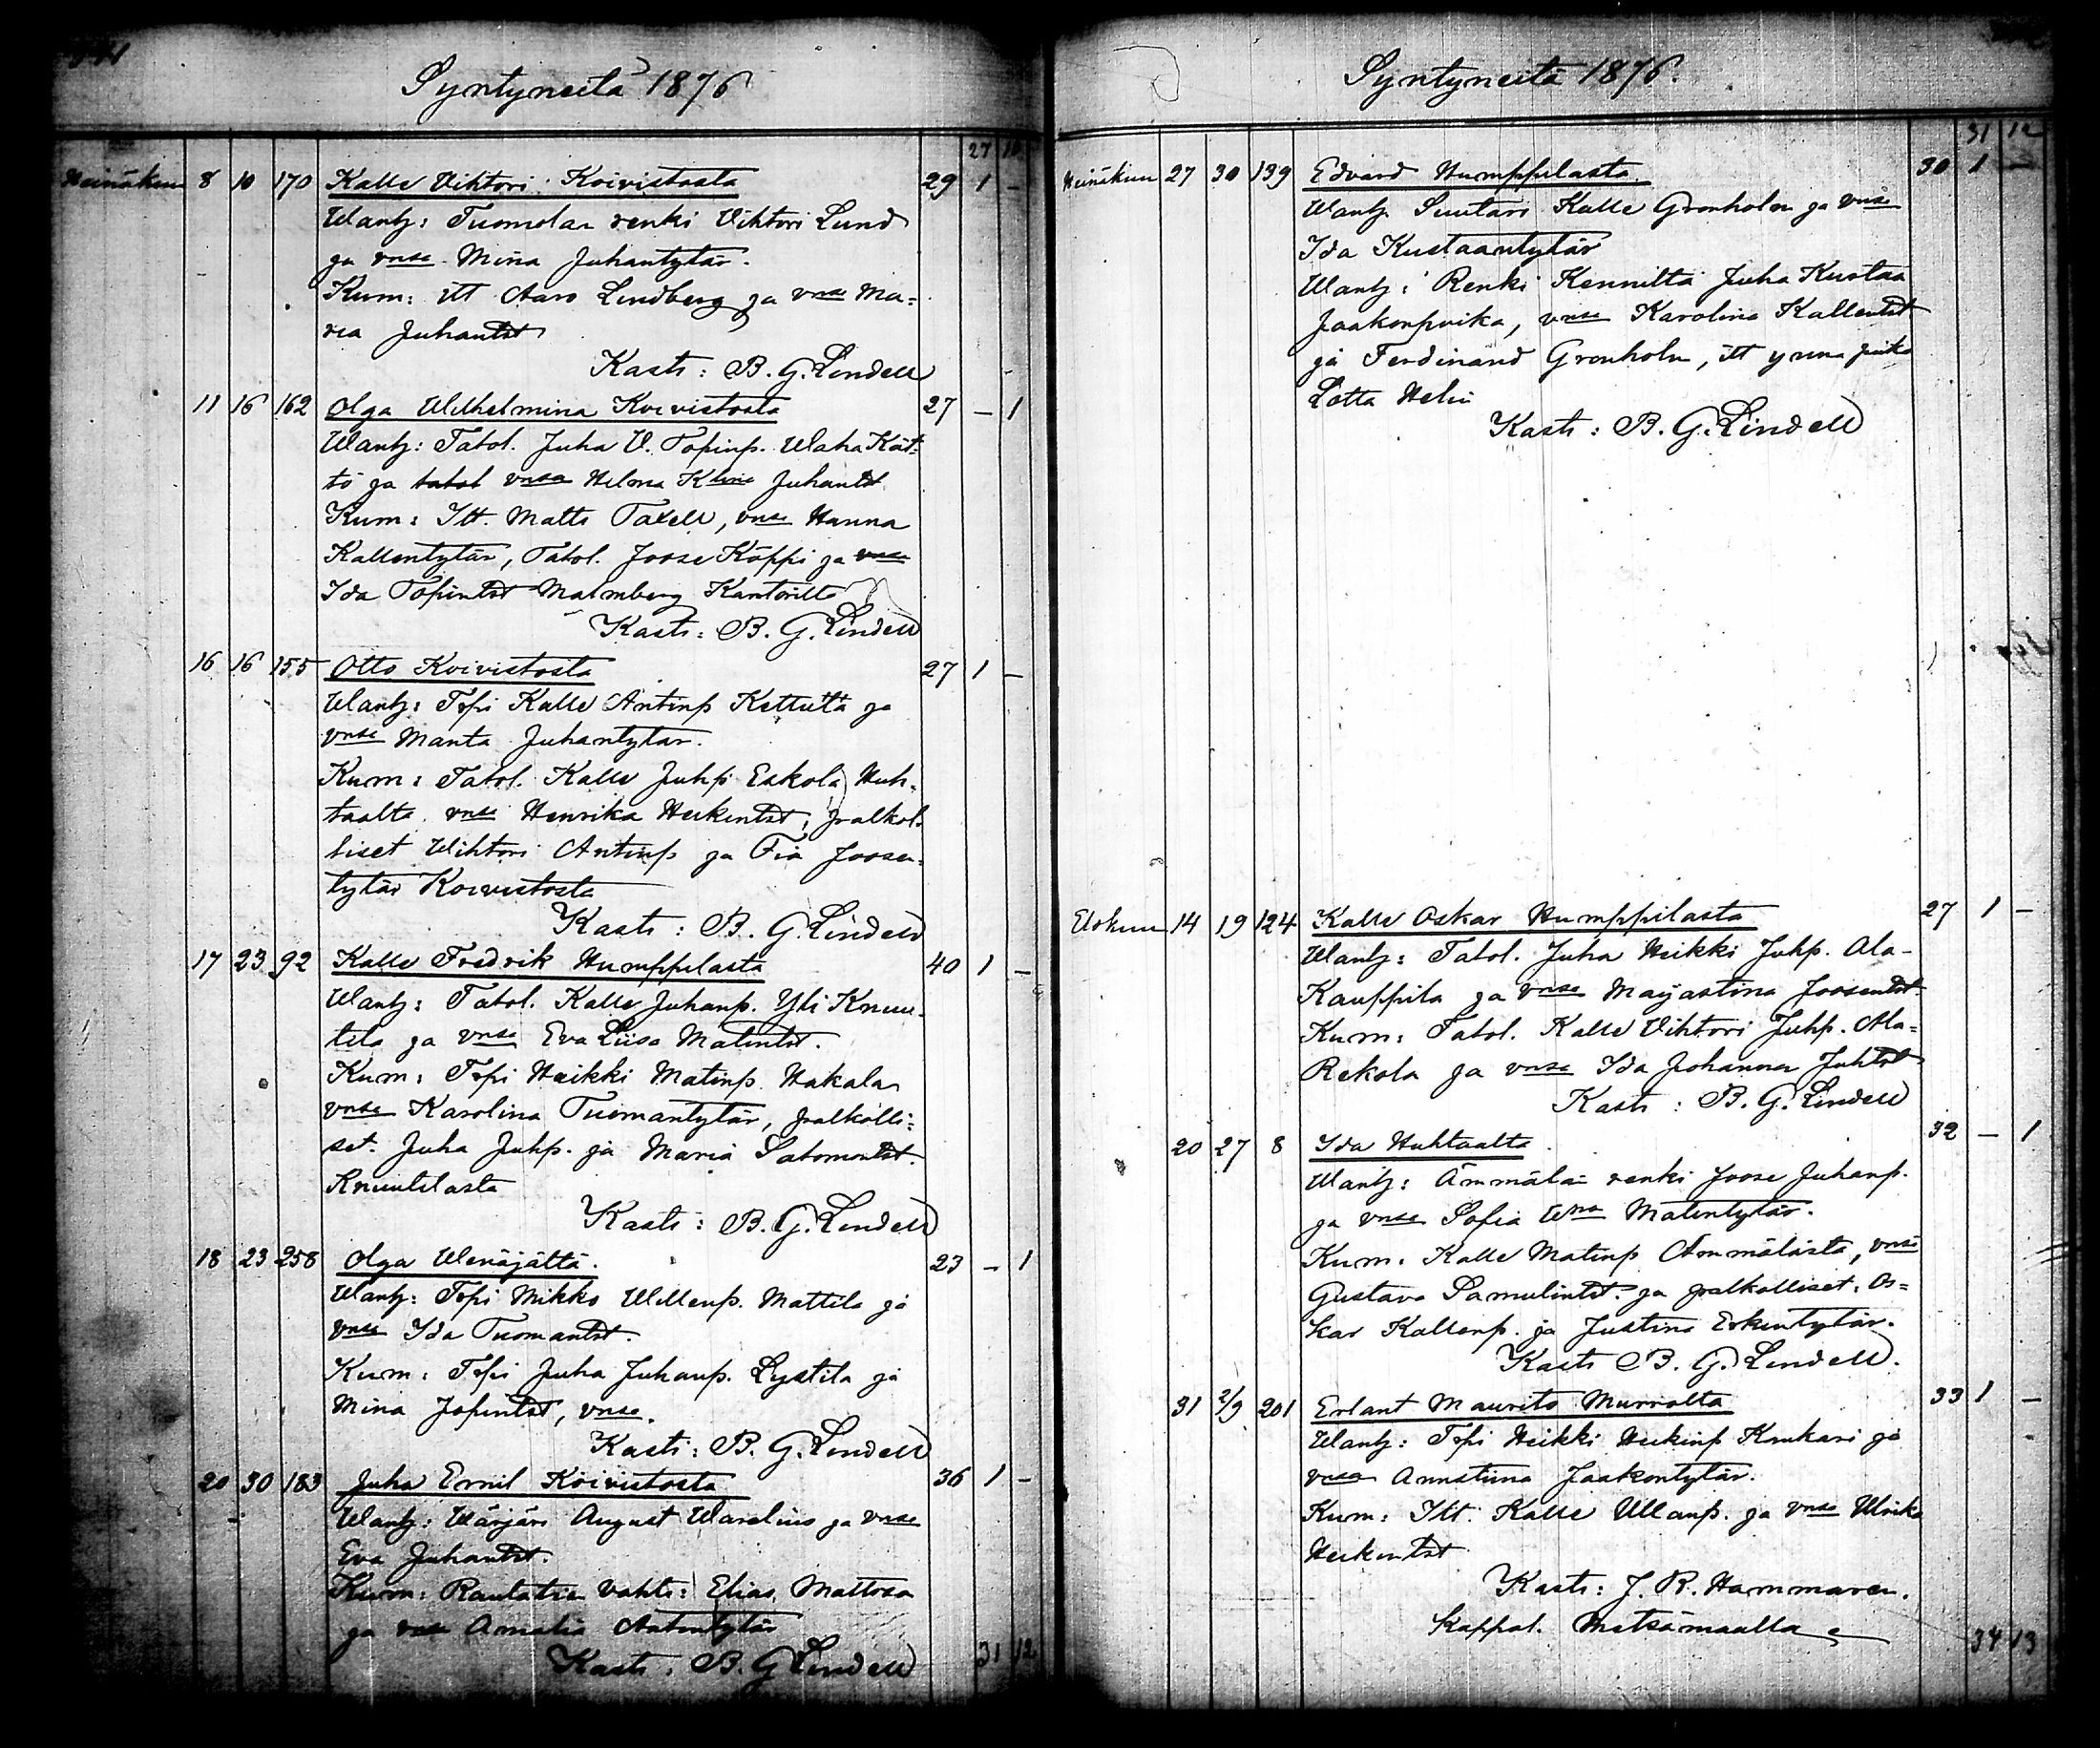 Syntyneitä 1876
27 10
Heinäkuu 8 10 170 Kalle Vihtori Koivistosta 29 1 –
Wanh: Tuomolan renki Vihtori Lund
ja vnsa Miña Juhantytär.
Kum: itt Aaro Lindberg ja vnsa Ma=
ria Juhantst
Kasti: B. G. Lindell
11 16 162 Olga Wilhelmina Koivistosta 27 – 1
Wanh: Tatol. Juha V. Topinp. Waha Köt=
tö ja tatol vnsa Helma Kliina Juhantst
Kum: Itt. Matts Taxell, vnsa Hanna
Kallentytär, Tatol. Joose Köppi ja vnsa
Ida Topintst Malmberg Kanterilta
Kasti: B. G. Lindell
16 16 155 Otto Koivistosta 27 1 –
Wanh: Topi Kalle Antinp Kettulta ja
vnsa Manta Juhantytar.
Kum: Tatol. Kalle Juhp Eskola Huh=
taalta vnsa Henrika Heikintst, palkol=
liset Wihtori Antinp ja Fia Joosen=
tytär Koivistosta
Kasti: B. G. Lindell
17 23 92 Kalle Fredrik Humppilasta 40 1 –
Wanh: Tatol. Kalle Juhanp. Yli Knuu=
tila ja vnsa Eva Liisa Matintst.
Kum: Topi Heikki Matinp. Hakala
vnsa Karolina Tuomantytär, palkolli=
set. Juha Juhp. ja Maria Salomontst.
Knuutilasta
Kasti: B. G. Lindell
18 23 258 Olga Wenäjältä. 23 – 1
Wanh: Topi Mikko Willenp. Mattila ja
vnsa Ida Tuomantst.
Kum: Topi Juha Juhanp. Lystilä ja
Mina Jopintst, vnsa.
Kasti: B. G. Lindell
20 30 183 Juha Emil Koivistosta 36 1 –
Wanh: Wärjäri August Warelius ja vnsa
Eva Juhantst.
Kum: Rautatien vahti: Elias Mattson
ja vnsa Amalia Antintytär
Kasti: B. G. Lindell 31 12
Syntyneitä 1876.
31 12
Heinäkuu 27 30 139 Edvard Humppilasta. 30 1 –
Wanh Suutari Kalle Gronholm ja vnsa
Ida Kustaantytär
Wanh: Renki Kenniltä Juha Kustaa
Jaakonpoika, vnsa Karolina Kallentst
ja Ferdinand Gronholm, itt ynna piika
Lotta Helin
Kasti: B. G. Lindell
Elokuu 14 19 124 Kalle Oskar Humppilasta 27 1 –
Wanh: Tatol. Juha Heikki Juhp. Ala-
Kauppila ja vnsa Maijastina Joosentst.
Kum: Tatol. Kalle Vihtori Juhp. Ala=
Rekola ja vnsa Ida Johanna Juhtst
Kasti: B. G. Lindell
20 27 8 Ida Huhtaalta. 32 – 1
Wanh: Ämmälän renki Joose Juhanp.
ja vnsa Sofia Wna Matintytär.
Kum: Kalle Matinp Ämmälästä, vnsa
Gustava Samulintst. ja palkolliset: Os=
kar Kallenp. ja Justina Erkintytär.
Kasti B. G. Lindell.
31 2/9 201 Erlant Maurits Murrolta 33 1 –
Wanh: Topi Heikki Heikinp Kaukari ja
vnsa Annastiina Jaakontytär.
Kum: Itt. Kalle Ullanp. ja vnsa Ulrika
Heikintst
Kasti: J. R. Hammaren.
Kappal. Metsämaalla
34 13